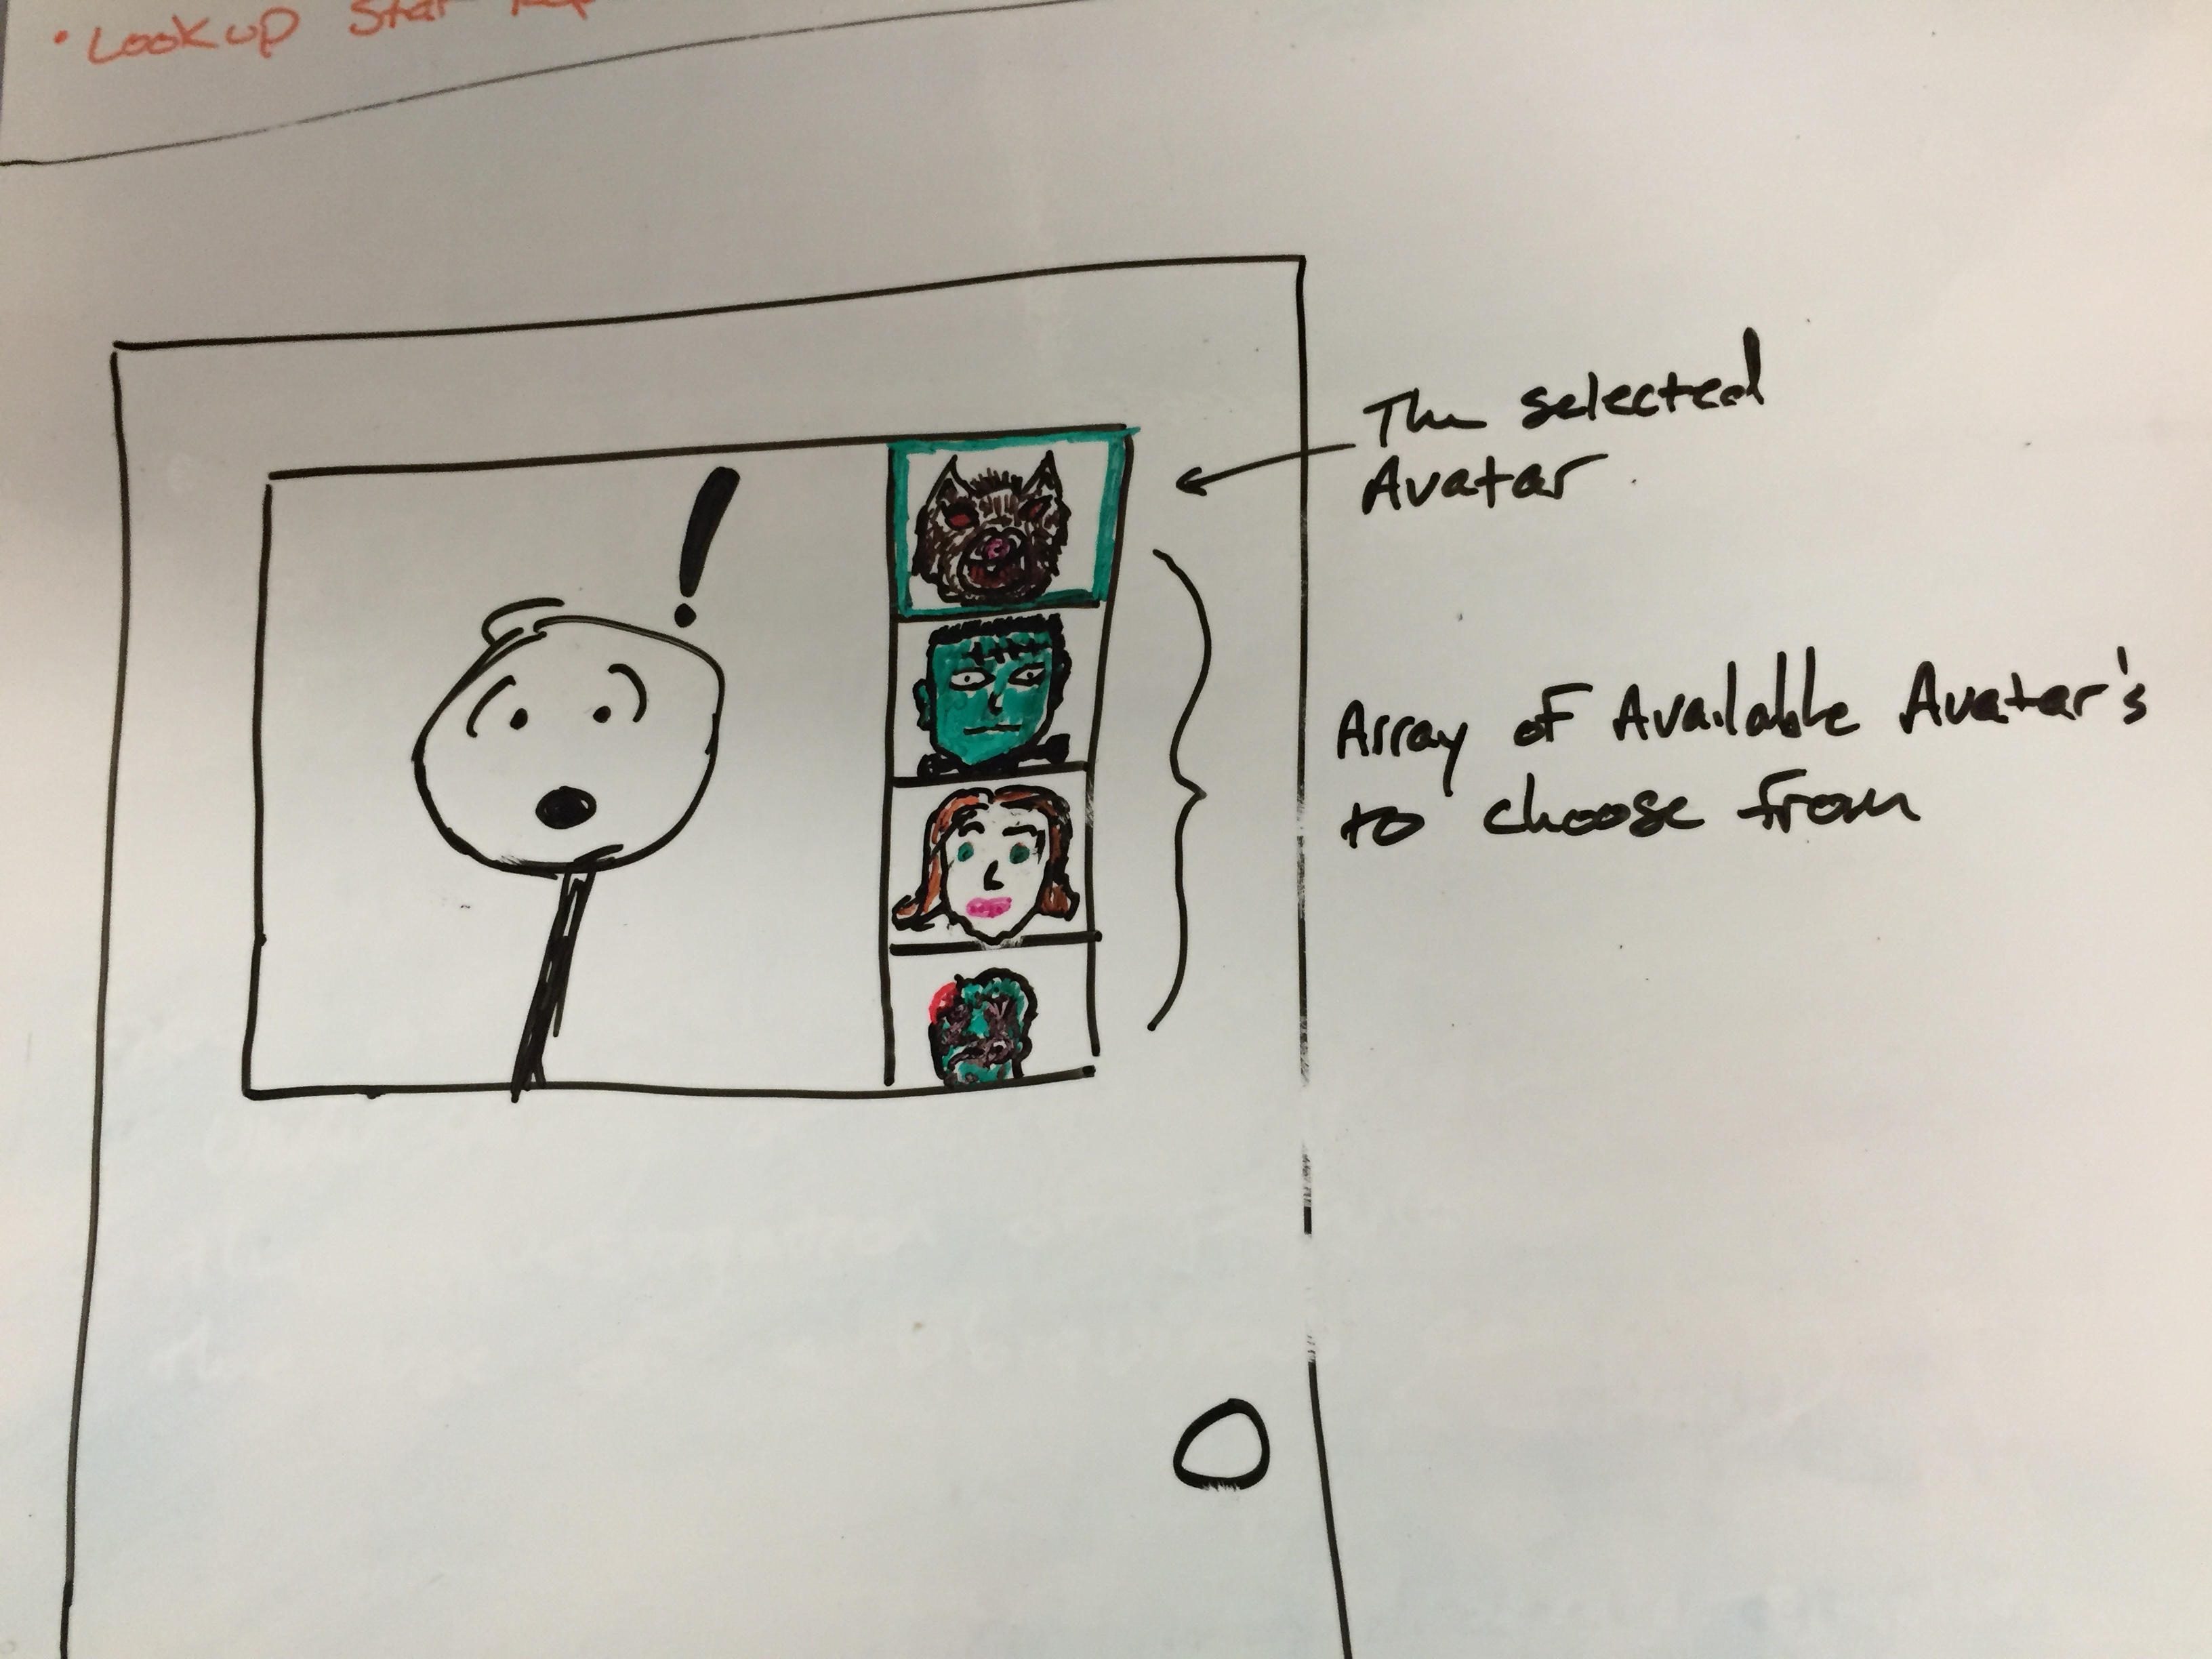 • Lookup Star
The selected
Avatar
!
Array of Available Avatar's
to choose from